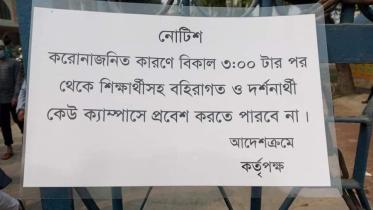 নোটিশ
করোনাজনিত কারণে বিকাল ৩:০০ টার পর
থেকে শিক্ষার্থীসহ বহিরাগত ও দর্শনার্থী
কেউ ক্যাম্পাসে প্রবেশ করতে পারবে না ।
আদেশক্রমে
কর্তৃপক্ষ